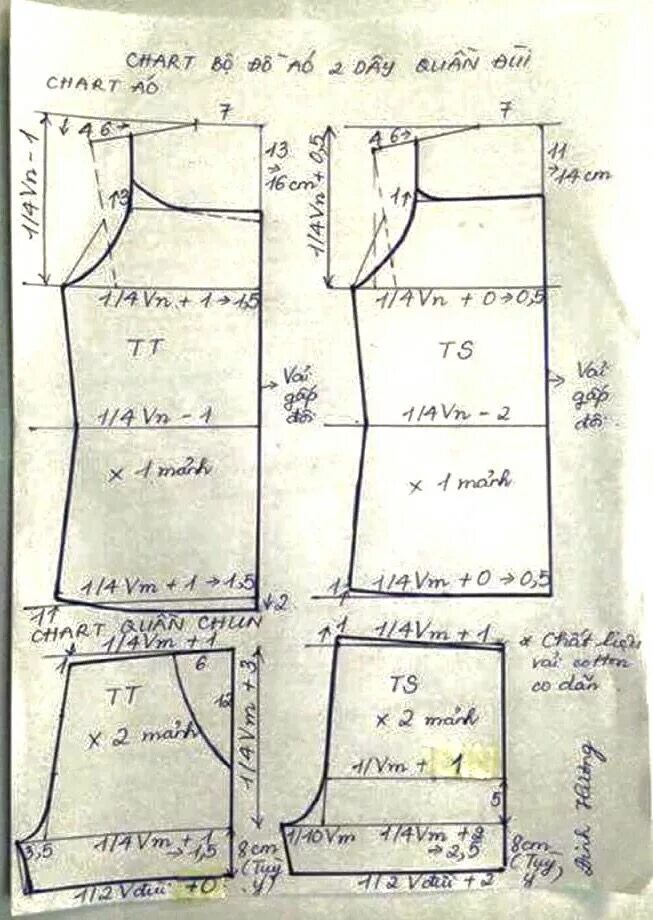 CHART BỘ ĐỒ AÓ 2 DÂY QUẦN ĐÙI
CHART AÓ
7
4 6
13
→
16 cm
1/4Vn - 1
13
1/4 Vn + 1 → 1,5
TT
Vải
gấp
đôi
1/4 Vn - 1
x 1 mảnh
1/4 Vm + 1 → 1,5
1
2
7
4 6
11
→
14 cm
1/4Vn + 0,5
1
1/4 Vn + 0 → 0,5
TS
Vải
gấp
đôi
1/4 Vn - 2
x 1 mảnh
1
1/4 Vm + 0 → 0,5
CHART QUẦN CHUN
1/4 Vm + 1
1
6
TT
12
x 2 mảnh
1/4 Vm + 3
3,5
1/4 Vm + 1
→ 1,5
8cm
(Tùy
ý)
1/2 Vđùi + 0
1
1/4 Vm + 1
* Chất liệu
vải cotton
co dãn
TS
x 2 mảnh
1/Vm + 1
5
1/10 Vm
1/4 Vm +
→ 2,5
8cm
(Tùy
ý)
1/2 Vđùi + 2
Đinh Hường